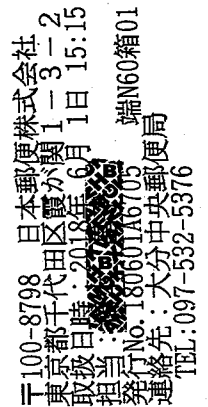 〒100-8798 日本郵便株式会社
東京都千代田区霞が関1-3-2
取扱日時:2018年 6月 1日 15:15
担当:
発行No.180601A6705 端N60箱01
連絡先:大分中央郵便局
TEL:097-532-5376